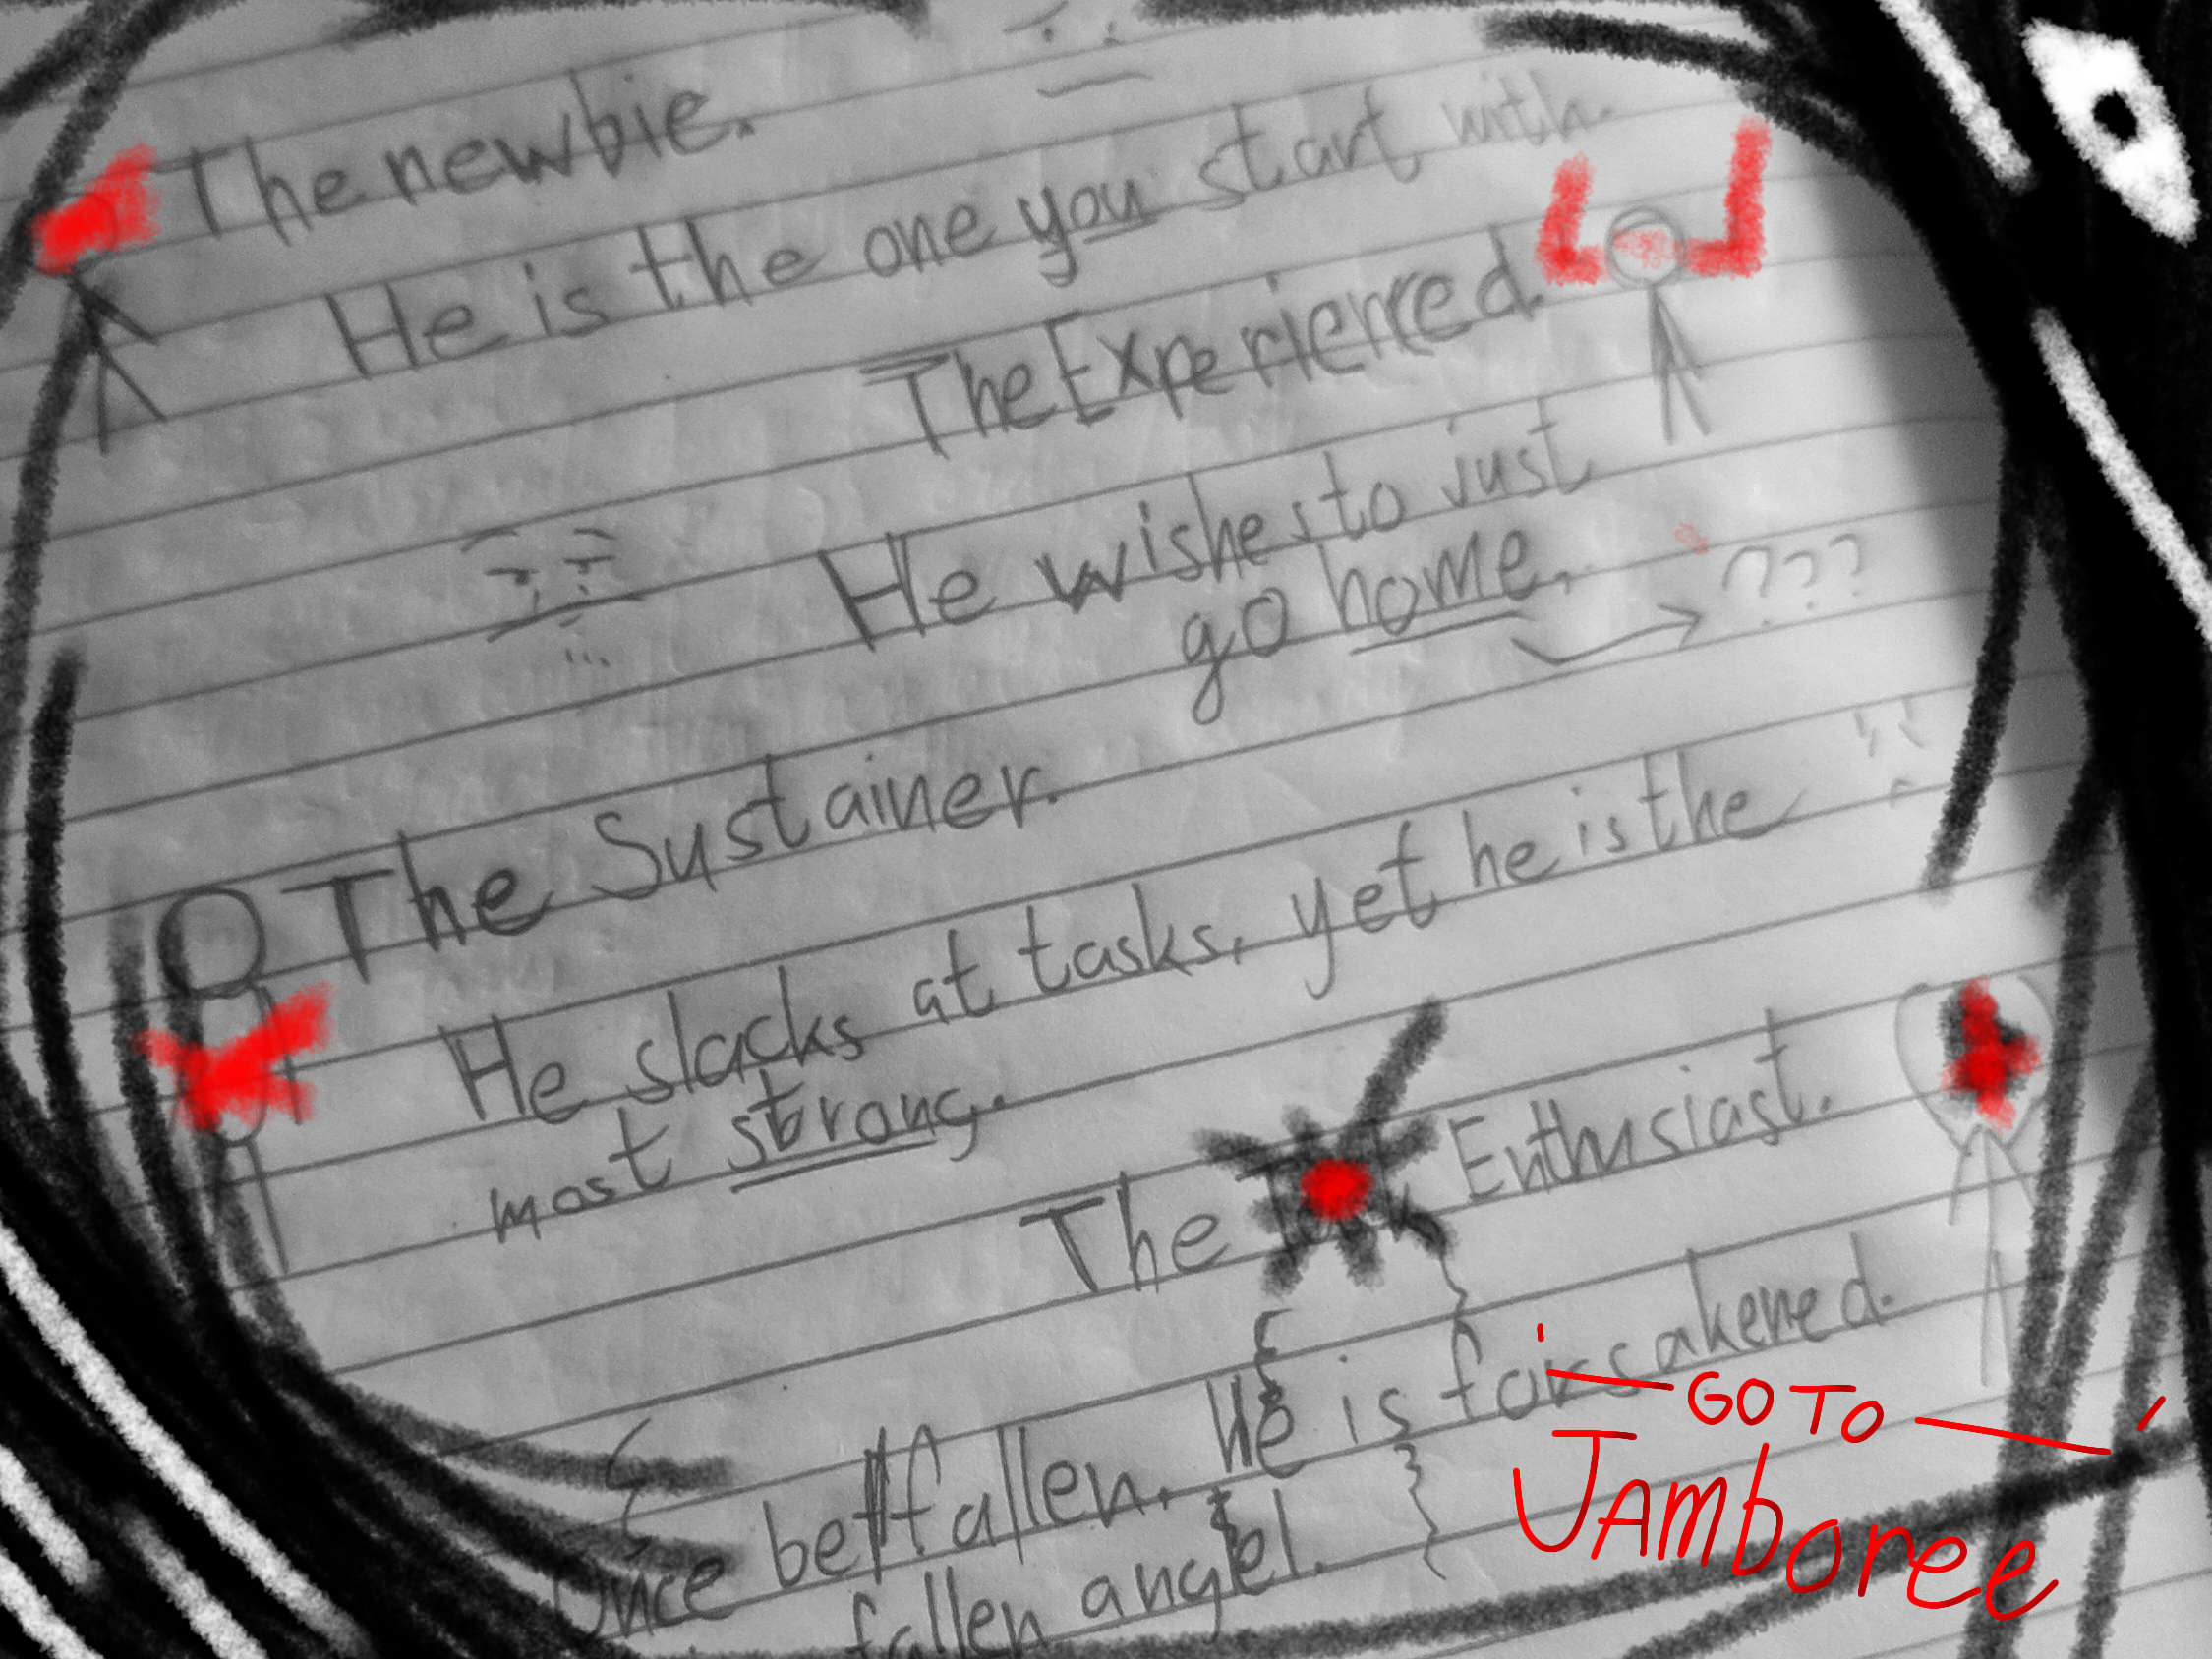 The newbie.
He is the one you start with.
The Experienced.
He wishes to just
go home.
???
The Sustainer.
He slacks at tasks, yet he is the
most strong.
The Enthusiast.
Once befallen. He is forsakened.
fallen angel.
GO TO
JAMboree